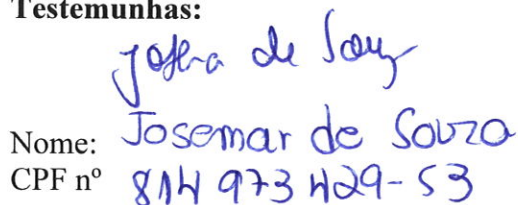 Testemunhas:
de Souz
Nome: Josemar de Souza
CPF nº 814 973 429-53